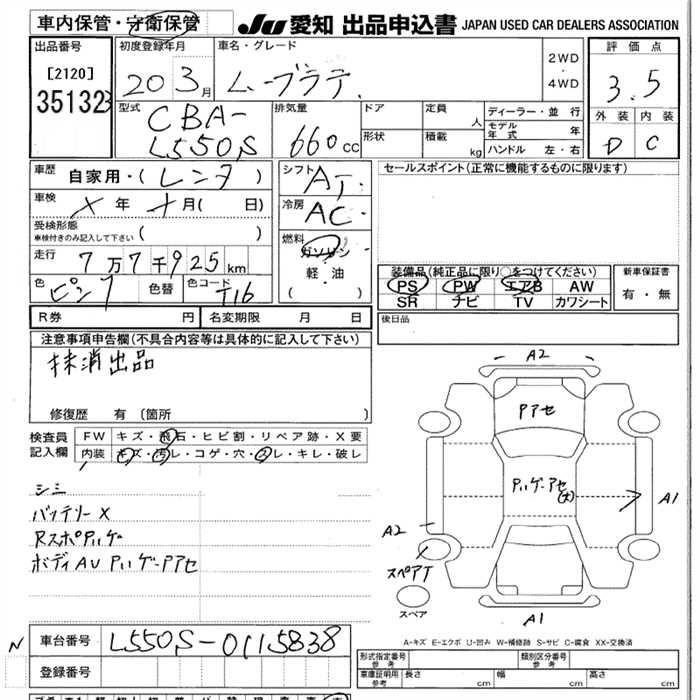 車内保管・守衛保管
JU 愛知 出品申込書 JAPAN USED CAR DEALERS ASSOCIATION
出品番号
[2120]
35132
初度登録年月
20 3月
車名・グレード
ムーブラテ
2WD
・
4WD
評価点
3.5
外装 内装
D C
型式
CBA-
L550S
排気量
660cc
ドア
形状
定員 人
積載 kg
ディーラー・並 行
モデル年式 年
ハンドル 左・右
車歴 自家用・(レンタ)
車検 × 年 × 月( 日)
受検形態
車検付きのみ記入して下さい ( )
走行 7万7千925km
色 ピンク 色替 色コード T16
シフト AT
冷房 AC
燃料
ガソリン
・
軽・油
( )
セールスポイント(正常に機能するものに限ります)
装備品(純正品に限り○をつけてください)
PS PW エアB AW
SR ナビ TV カワシート
新車保証書
有・無
R券 円 名変期限 月 日
後日品
注意事項申告欄(不具合内容等は具体的に記入して下さい)
抹消出品
修復歴 有 (箇所 )
検査員
記入欄
FW キズ・飛石・ヒビ割・リペア跡・X要
内装 キズ・汚レ・コゲ・穴・スレ・キレ・破レ
シミ
バッテリーX
RスポPハゲ
ボディAU Pハゲ-Pアセ
A2
Pアセ
Pハゲ-アセ
(大)
A1
A2
スペアT
スペア
A1
A-キズ E-エクボ U-凹み W-補修跡 S-サビ C-腐食 XX-交換済
N 車台番号 L550S-0115838
登録番号
形式指定番号
参考
類別区分番号
参考
車庫証明用
参考
長さ cm 幅 cm 高さ cm